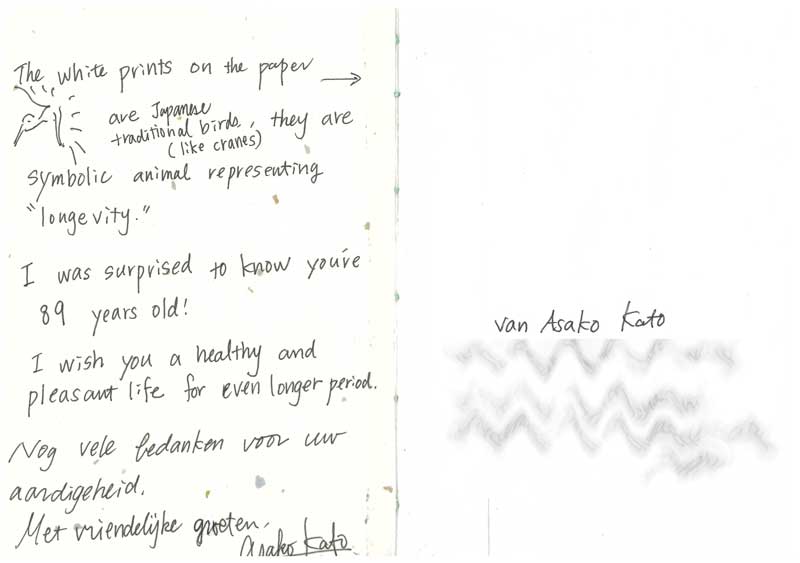 The white prints on the paper →
are Japanese
traditional birds, they are
(like cranes)
symbolic animal representing
"longevity."
I was surprised to know you're
89 years old!
I wish you a healthy and
pleasant life for even longer period.
Nog vele bedanken voor uw
aardigeheid.
Met vriendelijke groeten,
Asako Kato
van Asako Kato